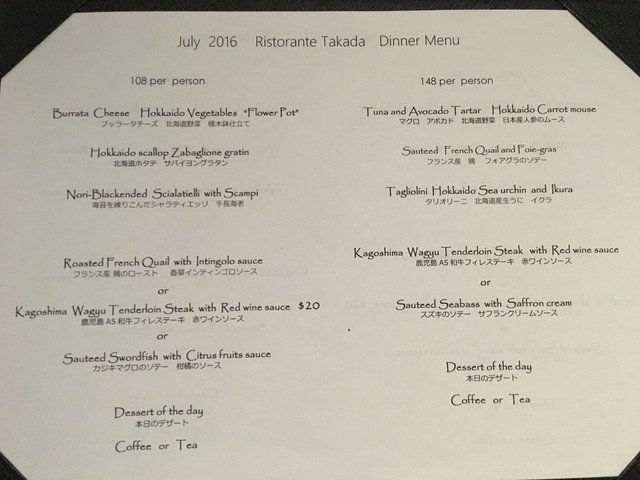 July 2016 Ristorante Takada Dinner Menu
108 per person
Burrata Cheese Hokkaido Vegetables "Flower Pot"
ブッラータチーズ 北海道野菜 植木鉢仕立て
Hokkaido scallop Zabaglione gratin
北海道ホタテ サバイヨングラタン
Nori-Blackended Scialatielli with Scampi
海苔を練りこんだシャラティエッリ 手長海老
Roasted French Quail with Intingolo sauce
フランス産 鶉のロースト 香草インティンゴロソース
or
Kagoshima Wagyu Tenderloin Steak with Red wine sauce $20
鹿児島 A5 和牛フィレステーキ 赤ワインソース
or
Sauteed Swordfish with Citrus fruits sauce
カジキマグロのソテー 柑橘のソース
Dessert of the day
本日のデザート
Coffee or Tea
148 per person
Tuna and Avocado Tartar Hokkaido Carrot mouse
マグロ アボカド 北海道野菜 日本産人参のムース
Sauteed French Quail and Foie-gras
フランス産 鶉 フォアグラのソテー
Tagliolini Hokkaido Sea urchin and Ikura
タリオリーニ 北海道産生うに イクラ
Kagoshima Wagyu Tenderloin Steak with Red wine sauce
鹿児島 A5 和牛フィレステーキ 赤ワインソース
or
Sauteed Seabass with Saffron cream
スズキのソテー サフランクリームソース
Dessert of the day
本日のデザート
Coffee or Tea